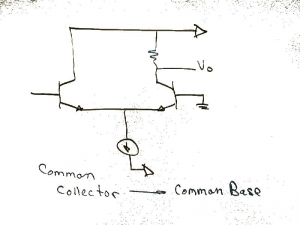 Vo
Common
Collector → Common Base